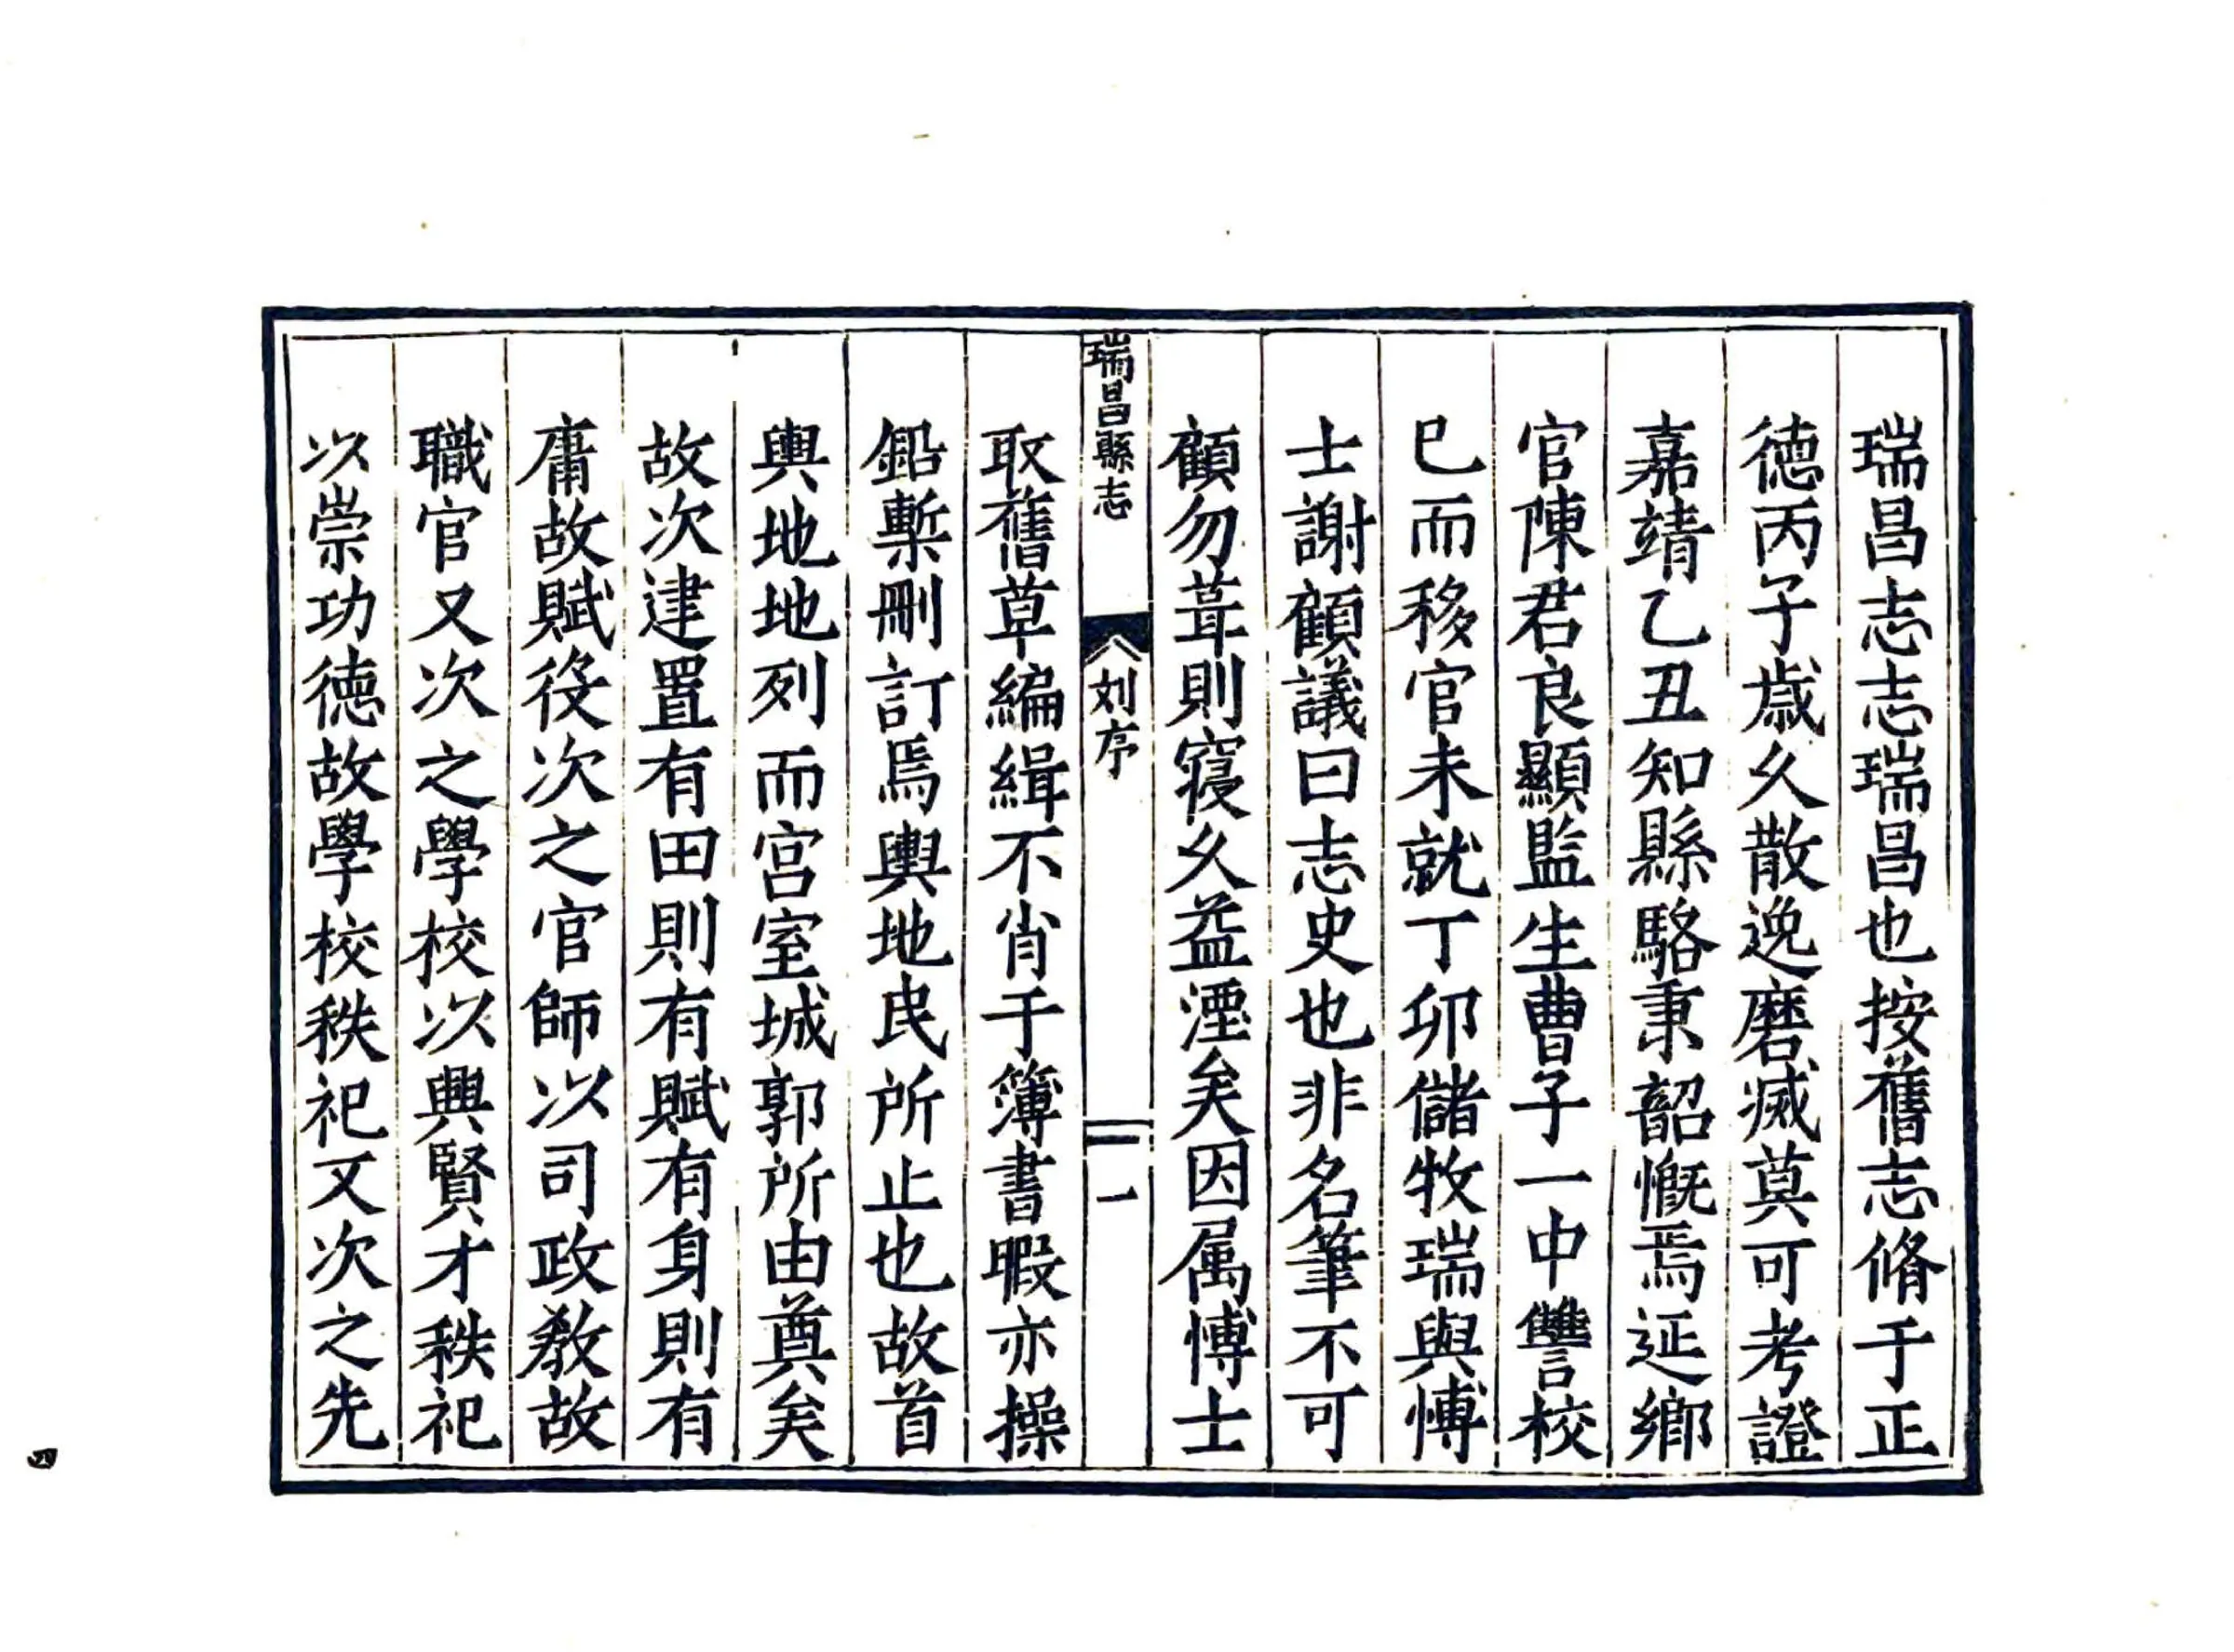 瑞昌志志瑞昌也按舊志脩于正
德丙子歲久散逸磨滅莫可考證
嘉靖乙丑知縣駱秉韶慨焉延鄉
官陳君良顯監生曹子一中讐校
已而移官未就丁卯儲牧瑞與博
士謝顧議曰志史也非名筆不可
顧勿葺則寢久益湮矣因属博士
瑞昌縣志 刘序 一
取舊草編緝不肖于簿書暇亦操
鉛槧刪訂焉輿地民所止也故首
輿地地列而宫室城郭所由奠矣
故次建置有田則有賦有身則有
庸故賦役次之官師以司政教故
職官又次之學校以興賢才秩祀
以崇功德故學校秩祀又次之先
四